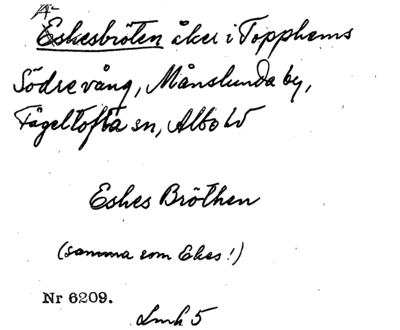 Ä-
Eskesbröten åker i Topphems
Södre vång, Månslunda by,
Fågeltofta sn, Albo hd
Eskes Bröthen
(samma som Ekes!)
Nr 6209.
Lmk 5